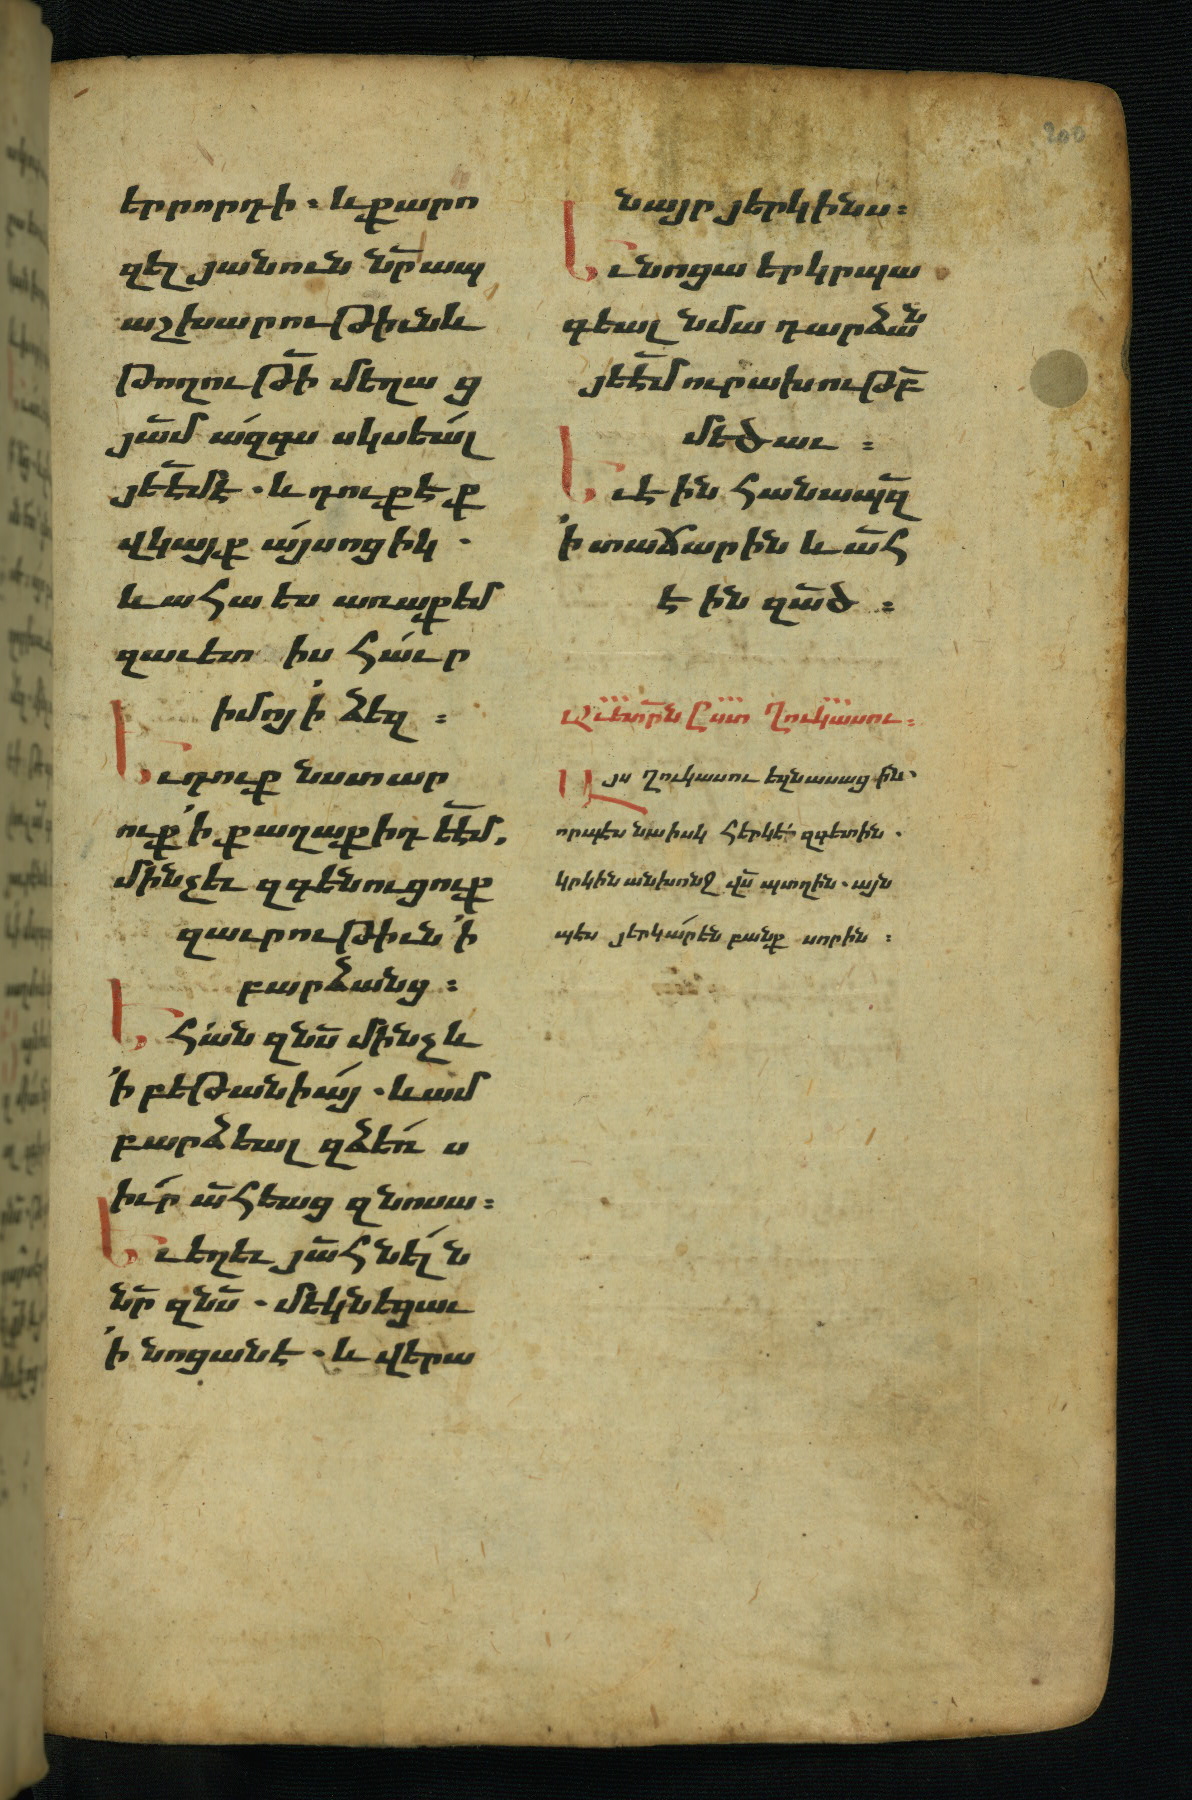 երրորդի. և քարո
զել յանուն նր̄ ապ
աշխարութիւն և
թողութի̄ մեղաց
յա̄մ ազգս սկսեալ
յեէ̄մէ. և դուք էք
վկայք այսոցիկ.
և ահա ես առաքեմ
զաւետիս հաւր
իմոյ ՚ի ձեզ։
Եւ դուք նստար
ուք ՚ի քաղաքիդ եէ̄մ,
մինչեւ զգենուցուք
զաւրութիւն ՚ի
բարձանց։
Եհան զնս̄ մինչև
՚ի բեթանիայ. և ամ
բարձեալ զձեռս
իւր ա̄հեաց զնոսա։
Եւ եղեւ յա̄հնելն
նր̄ զնս̄. մեկնեցաւ
՚ի նոցանէ. և վերա
նայր յերկինս։
Եւ նոցա երկրպա
գեալ նմա դարձան̄
յեէ̄մ ուրախութբ̄
մեծաւ։
Եւ էին հանապզ̄
՚ի տաճարին և ա̄հ
էին զա̄ծ։
Աւետրն̄ ըստ Ղուկասու։
Այս Ղուկասու եզնասացին.
որպէս նաիսկ հերկէ զգետին.
կրկին անխոնջ վս̄ պտղին. այն
պես յերկարեն բանք սորին։
200